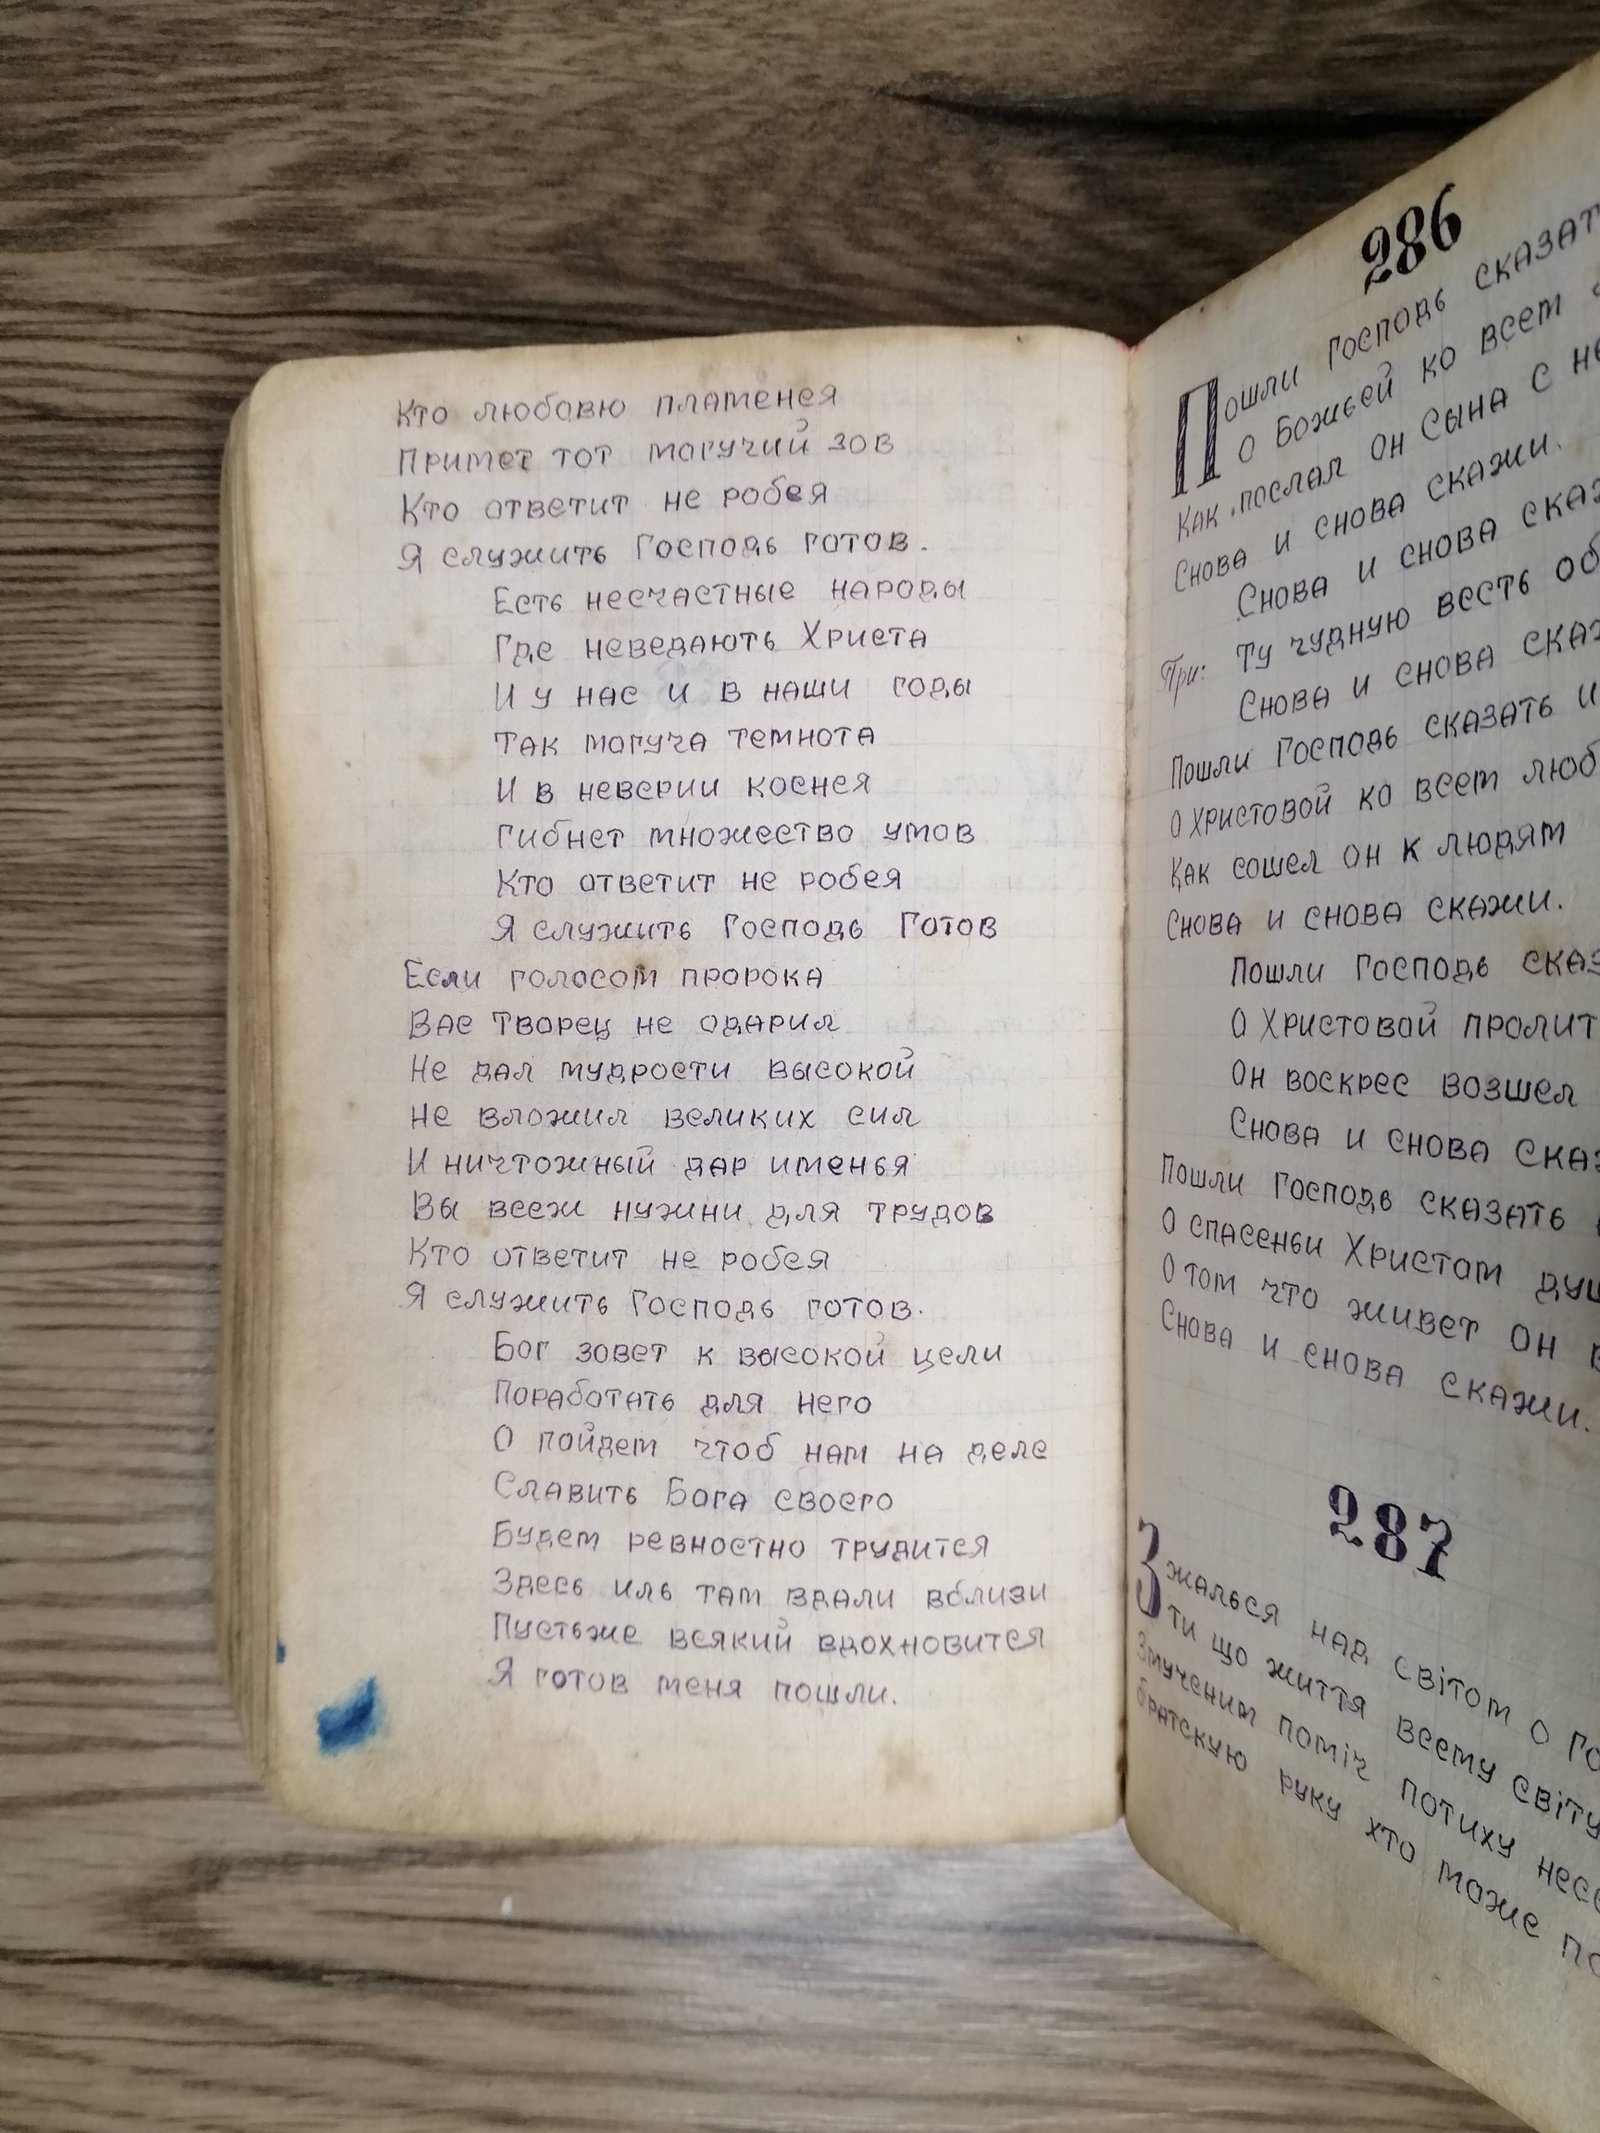 Кто любовю пламенея
Примет тот могучий зов
Кто ответит не робея
Я служить Господь готов.
Есть несчастные народы
Где неведають Христа
И у нас и в наши годы
Так могуча темнота
И в неверии коснея
Гибнет множество умов
Кто ответит не робея
Я служить Господь Готов
Если голосом пророка
Вас Творец не одарил
Не дал мудрости высокой
Не вложил великих сил
И ничтожный дар именья
Вы всеж нужни для трудов
Кто ответит не робея
Я служить Господь готов.
Бог зовет к высокой цели
Поработать для него
О пойдем чтоб нам на деле
Славить Бога своего
Будем ревностно трудится
Здесь иль там вдали вблизи
Пустьже всякий вдохновится
Я готов меня пошли.
286
Пошли Господь сказат
о Божьей ко всем
Как послал Он Сына с не
Снова и снова скажи.
Снова и снова сказ
При: Ту чудную весть об
Снова и снова скаж
Пошли Господь сказать и
О Христовой ко всем люб
Как сошел Он к людям
Снова и снова скажи.
Пошли Господь сказ
О Христовой пролит
Он воскрес возшел
Снова и снова сказ
Пошли Господь сказать
О спасеньи Христом душ
О том что живет Он в
Снова и снова скажи.
287
Зжалься над світом о Го
ти що життя всему світу
Змученим поміч потиху несе
братскую руку хто може по